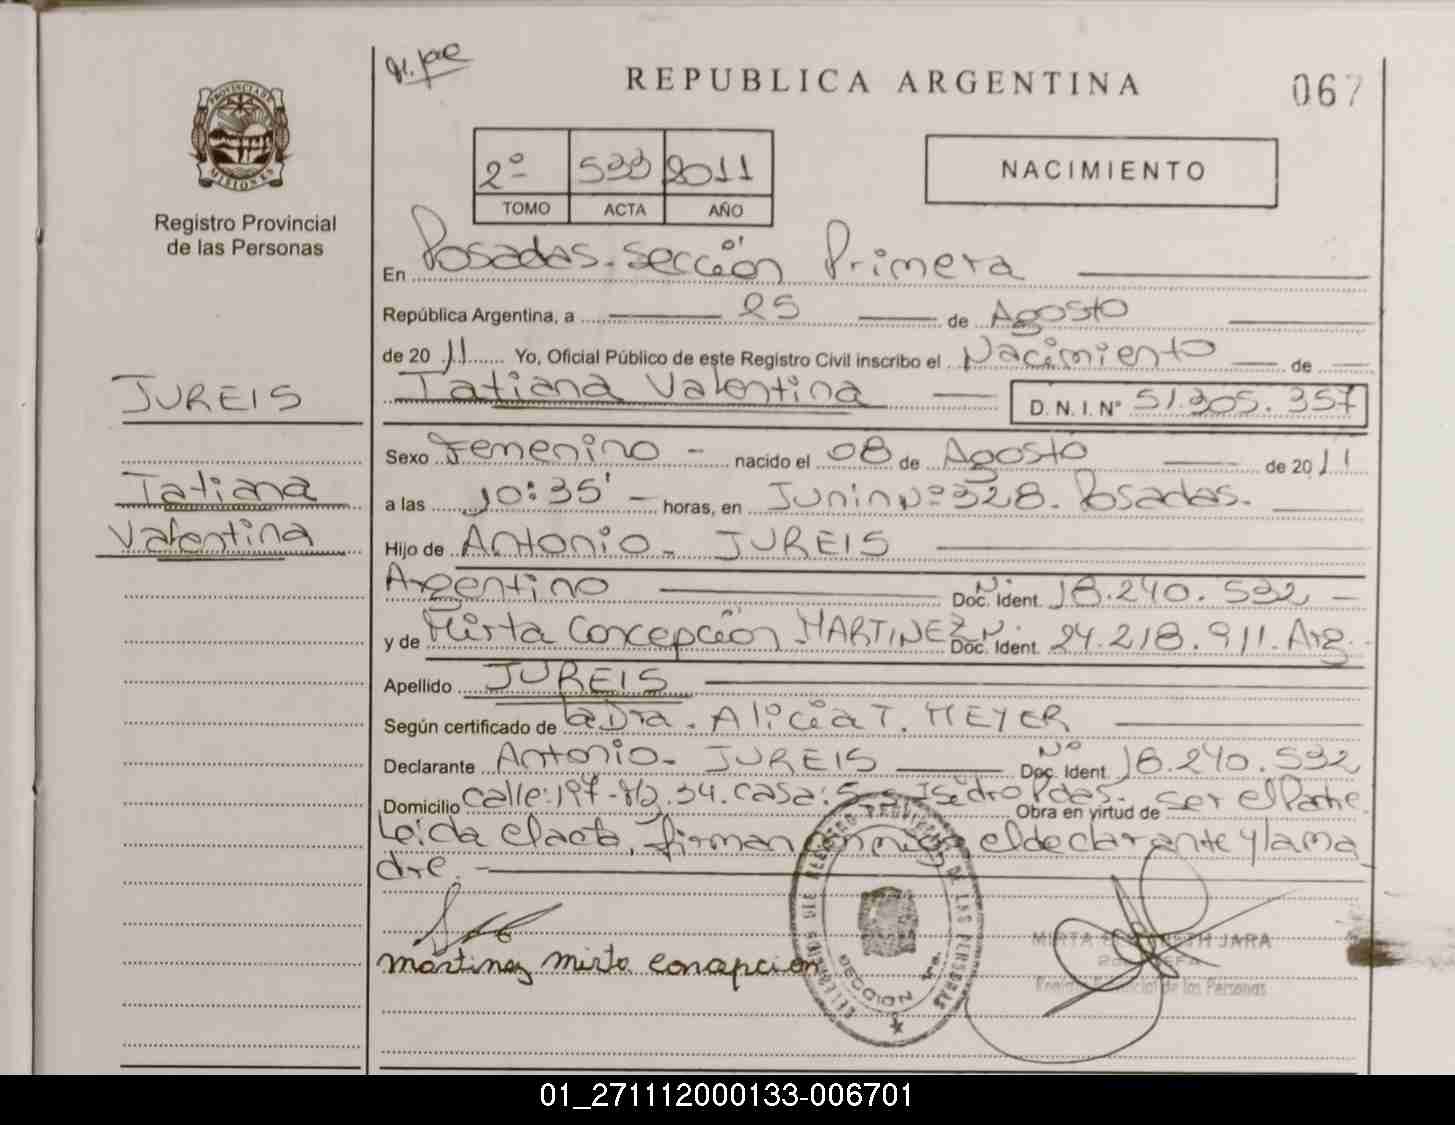 REPUBLICA ARGENTINA
067
PROVINCIA DE
MISIONES
Registro Provincial
de las Personas
2º 533 2011
TOMO ACTA AÑO
NACIMIENTO
En Posadas. Sección Primera
República Argentina, a 25 de Agosto
de 20 11 Yo, Oficial Público de este Registro Civil inscribo el Nacimiento de
Tatiana Valentina D. N. I. Nº 51.305.357
JUREIS
Tatiana
Valentina
Sexo Femenino - nacido el 08 de Agosto de 20 11
a las 10:35' - horas, en Junin Nº 328. Posadas.
Hijo de Antonio. JUREIS
Argentino Doc. Ident. Nº 18.240.532 -
y de Mirta Concepción MARTINEZ Doc. Ident. Nº 24.218.911. Arg.
Apellido JUREIS
Según certificado de la Dra. Alicia T. MEYER
Declarante Antonio. JUREIS Doc. Ident. Nº 18.240.532
Domicilio calle: 197-, 34. casa: 5 Isidro Pdas. Obra en virtud de ser el Padre.
Leida el acta, firman conmigo el declarante y la ma
dre. -
martinez mirta concepcion
REGISTRO PROVINCIAL DE LAS PERSONAS
SECCION 1ra.
MIRTA JARA
Registro Provincial de las Personas
01_271112000133-006701